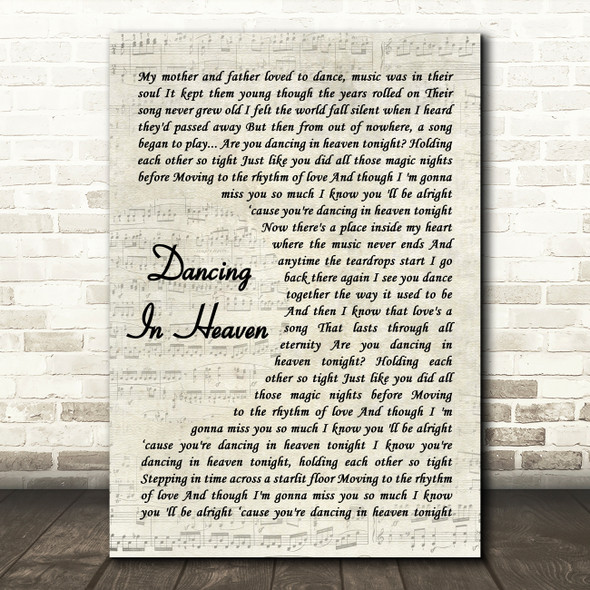 My mother and father loved to dance, music was in their
soul It kept them young though the years rolled on Their
song never grew old I felt the world fall silent when I heard
they'd passed away But then from out of nowhere, a song
began to play... Are you dancing in heaven tonight? Holding
each other so tight Just like you did all those magic nights
before Moving to the rhythm of love And though I 'm gonna
miss you so much I know you 'll be alright
‘cause you're dancing in heaven tonight
Now there's a place inside my heart
where the music never ends And
anytime the teardrops start I go
back there again I see you dance
together the way it used to be
And then I know that love's a
song That lasts through all
eternity Are you dancing in
heaven tonight? Holding each
other so tight Just like you did all
those magic nights before Moving
to the rhythm of love And though I 'm
gonna miss you so much I know you 'll be alright
‘cause you're dancing in heaven tonight I know you're
dancing in heaven tonight, holding each other so tight
Stepping in time across a starlit floor Moving to the rhythm
of love And though I'm gonna miss you so much I know
you 'll be alright ‘cause you're dancing in heaven tonight
Dancing
In Heaven